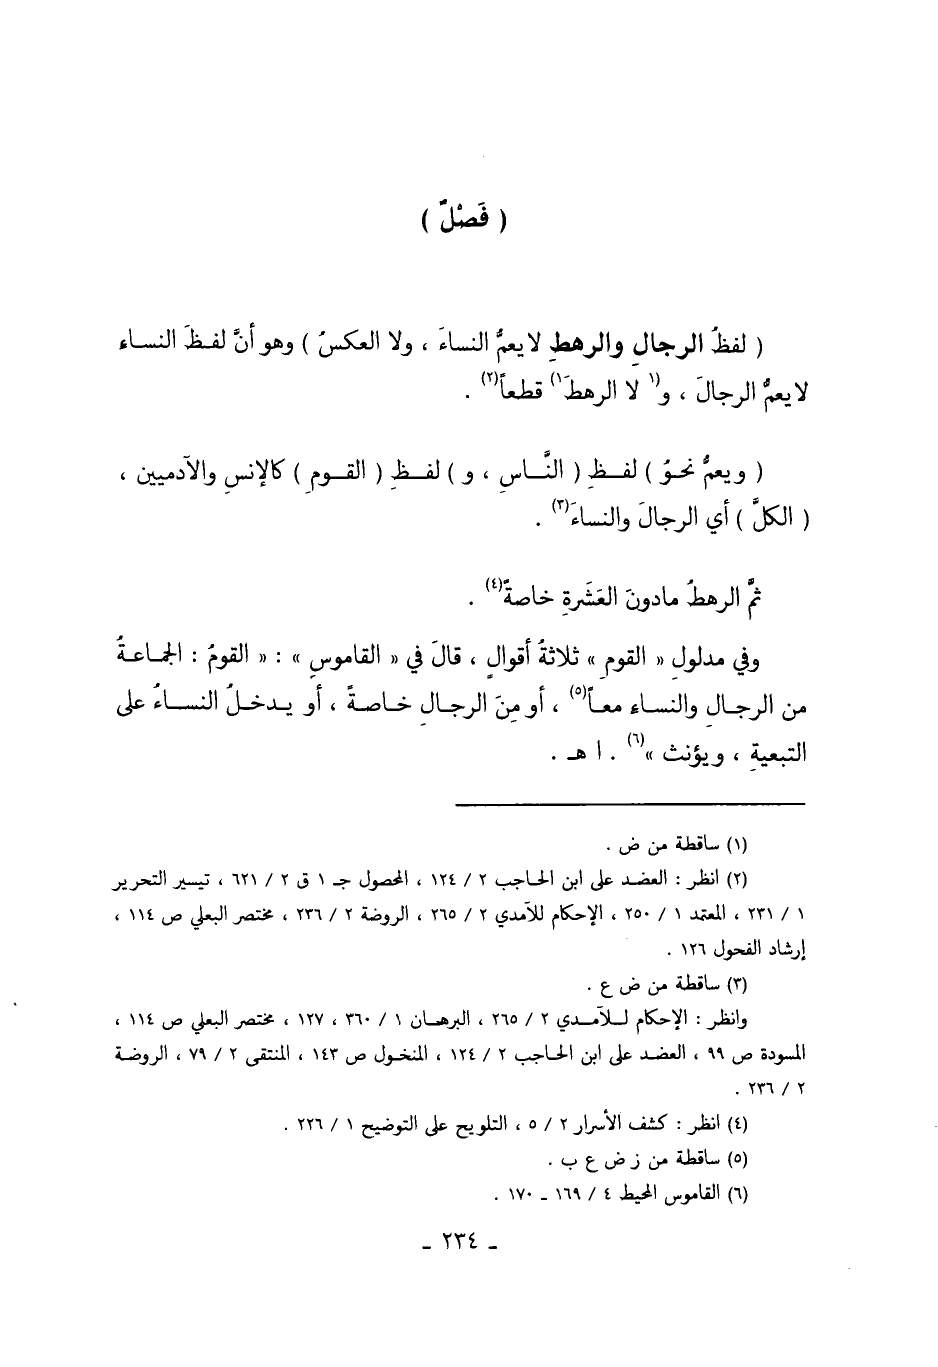 ( فَصْلٌ )
( لفظُ الرجالِ والرهطِ لا يعمُّ النساءَ ، ولا العكسُ ) وهو أنَّ لفـظَ النسـاء
لا يعمُّ الرجالَ ، و(١ لا الرهطَ١) قطعاً(٢) .
( ويعمُّ نحـوُ ) لفـظِ ( النَّـاسِ ، و ) لفـظِ ( القـومِ ) كالإنسِ والآدميين ،
( الكلَّ ) أي الرجالَ والنساءَ(٣) .
ثمَّ الرهطُ مادونَ العَشَرةِ خاصةً(٤) .
وفي مدلولِ « القومِ » ثلاثةُ أقوالٍ ، قالَ في « القاموسِ » : « القومُ : الجمـاعـةُ
من الرجـالِ والنسـاءِ معـاً(٥) ، أو مِنَ الرجـالِ خـاصـةً ، أو يـدخـلُ النسـاءُ على
التبعيةِ ، ويؤنث »(٦) . ا هـ .
(١) ساقطة من ض .
(٢) انظر : العضـد على ابن الحـاجب ٢ / ١٢٤ ، المحصول جـ ١ ق ٢ / ٦٢١ ، تيسير التحرير
١ / ٢٣١ ، المعتمد ١ / ٢٥٠ ، الإحكام للآمدي ٢ / ٢٦٥ ، الروضة ٢ / ٢٣٦ ، مختصر البعلي ص ١١٤ ،
إرشاد الفحول ١٢٦ .
(٣) ساقطة من ض ع .
وانظر : الإحكام لـلآمـدي ٢ / ٢٦٥ ، البرهـان ١ / ٣٦٠ ، ١٢٧ ، مختصر البعلي ص ١١٤ ،
المسودة ص ٩٩ ، العضـد على ابن الحـاجب ٢ / ١٢٤ ، المنخـول ص ١٤٣ ، المنتقى ٢ / ٧٩ ، الروضـة
٢ / ٢٣٦ .
(٤) انظر : كشف الأسرار ٢ / ٥ ، التلويح على التوضيح ١ / ٢٢٦ .
(٥) ساقطة من ز ض ع ب .
(٦) القاموس المحيط ٤ / ١٦٩ ـ ١٧٠ .
ـ ٢٣٤ ـ